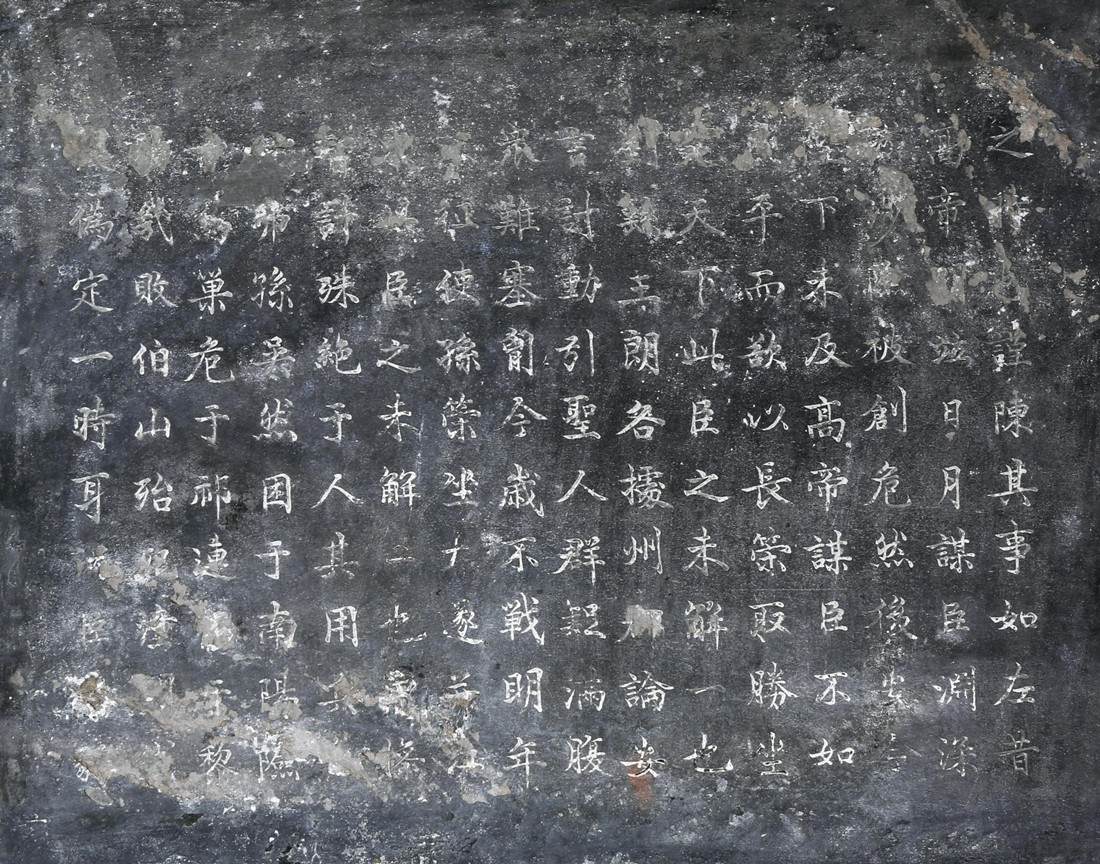 之時謹陳其事如左昔
高帝明竝日月謀臣淵深
涉險被創危然後安今
下未及高帝謀臣不如
平而欲以長策取勝坐
定天下此臣之未解一也
劉繇王朗各據州郡論安
言計動引聖人群疑滿腹
衆難塞胷今歲不戰明年
征使孫策坐大遂并江
臣之未解二也
計殊絶于人其用兵
髴孫吳然困于南陽險
烏巢危于祁連于黎
幾敗伯山殆死潼
偽定一時耳況臣